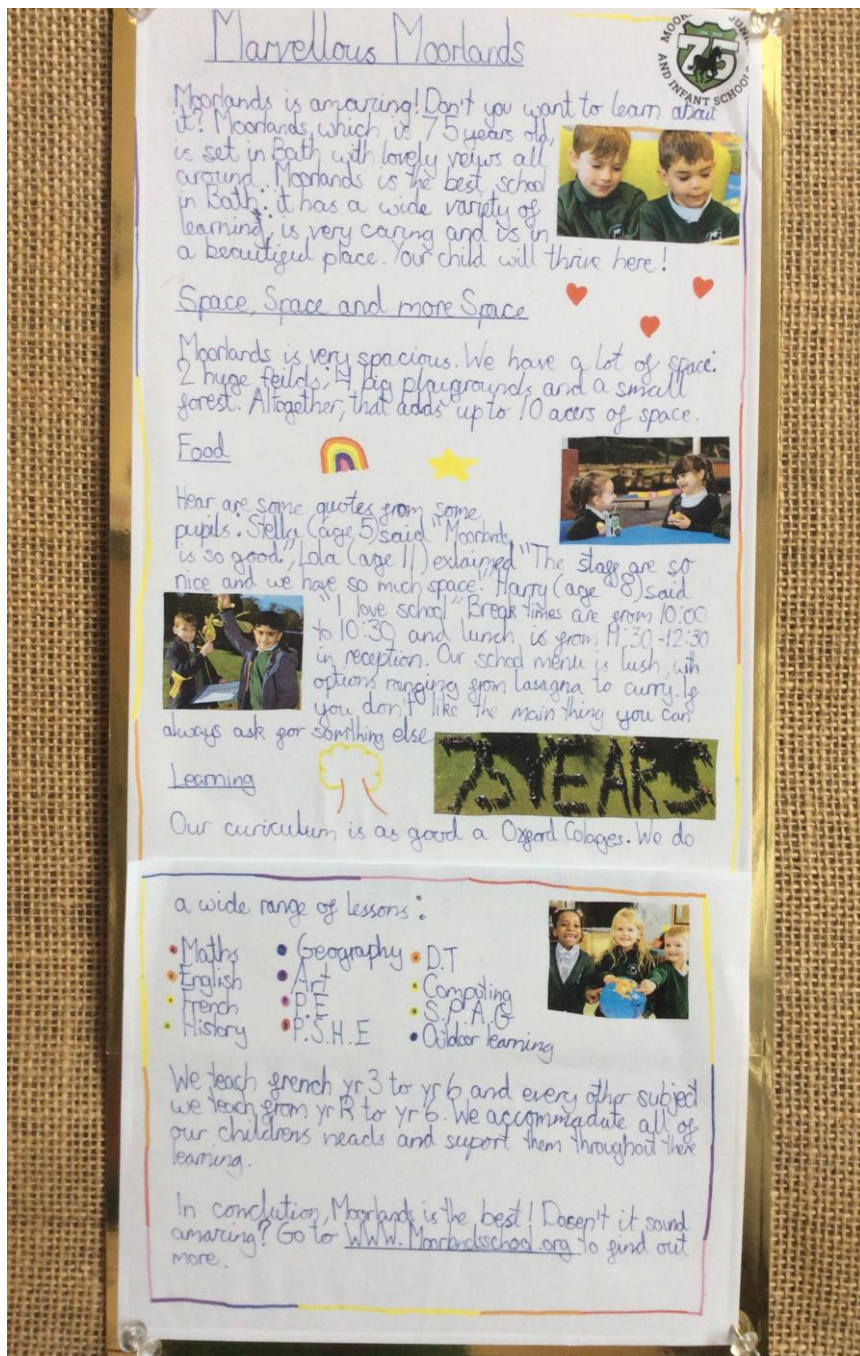 Marvellous Moorlands
MOOR JUNI
AND INFANT SCHOOL
75
Moorlands is amazing! Don't you want to learn about
it? Moorlands, which is 75 years old,
is set in Bath with lovely veiws all
around. Moorlands is the best school
in Bath: it has a wide variety of
learning, is very caring and is in
a beautiful place. Your child will thrive here!
Space, Space and more Space
Moorlands is very spacious. We have a lot of space:
2 huge feilds, 4 big playgrounds and a small
forest. Altogether, that adds up to 10 acers of space.
Food
Hear are some quotes from some
pupils: Stella (age 5) said "Moorlands
is so good", Lola (age 11) exlaimed "The staff are so
nice and we have so much space." Harry (age 8) said
"I love school" Break times are from 10:00
to 10:30 and lunch is from 11:30-12:30
in reception. Our school menu is lush, with
options ranging from lasagna to curry. If
you don't like the main thing you can
always ask for somthing else
75 YEARS
Learning
Our curiculum is as good a Oxford Colages. We do
a wide range of lessons:
Maths
English
French
History
Geography
Art
P.E
P.S.H.E
D.T
Computing
S.P.A.G
Outdoor learning
We teach french yr 3 to yr 6 and every other subject
we teach from yr R to yr 6. We accommadate all of
our childrens neads and suport them throughout there
learning.
In conclution, Moorlands is the best! Dosen't it sound
amazing? Go to WWW.Moorlandsschool.org to find out
more.